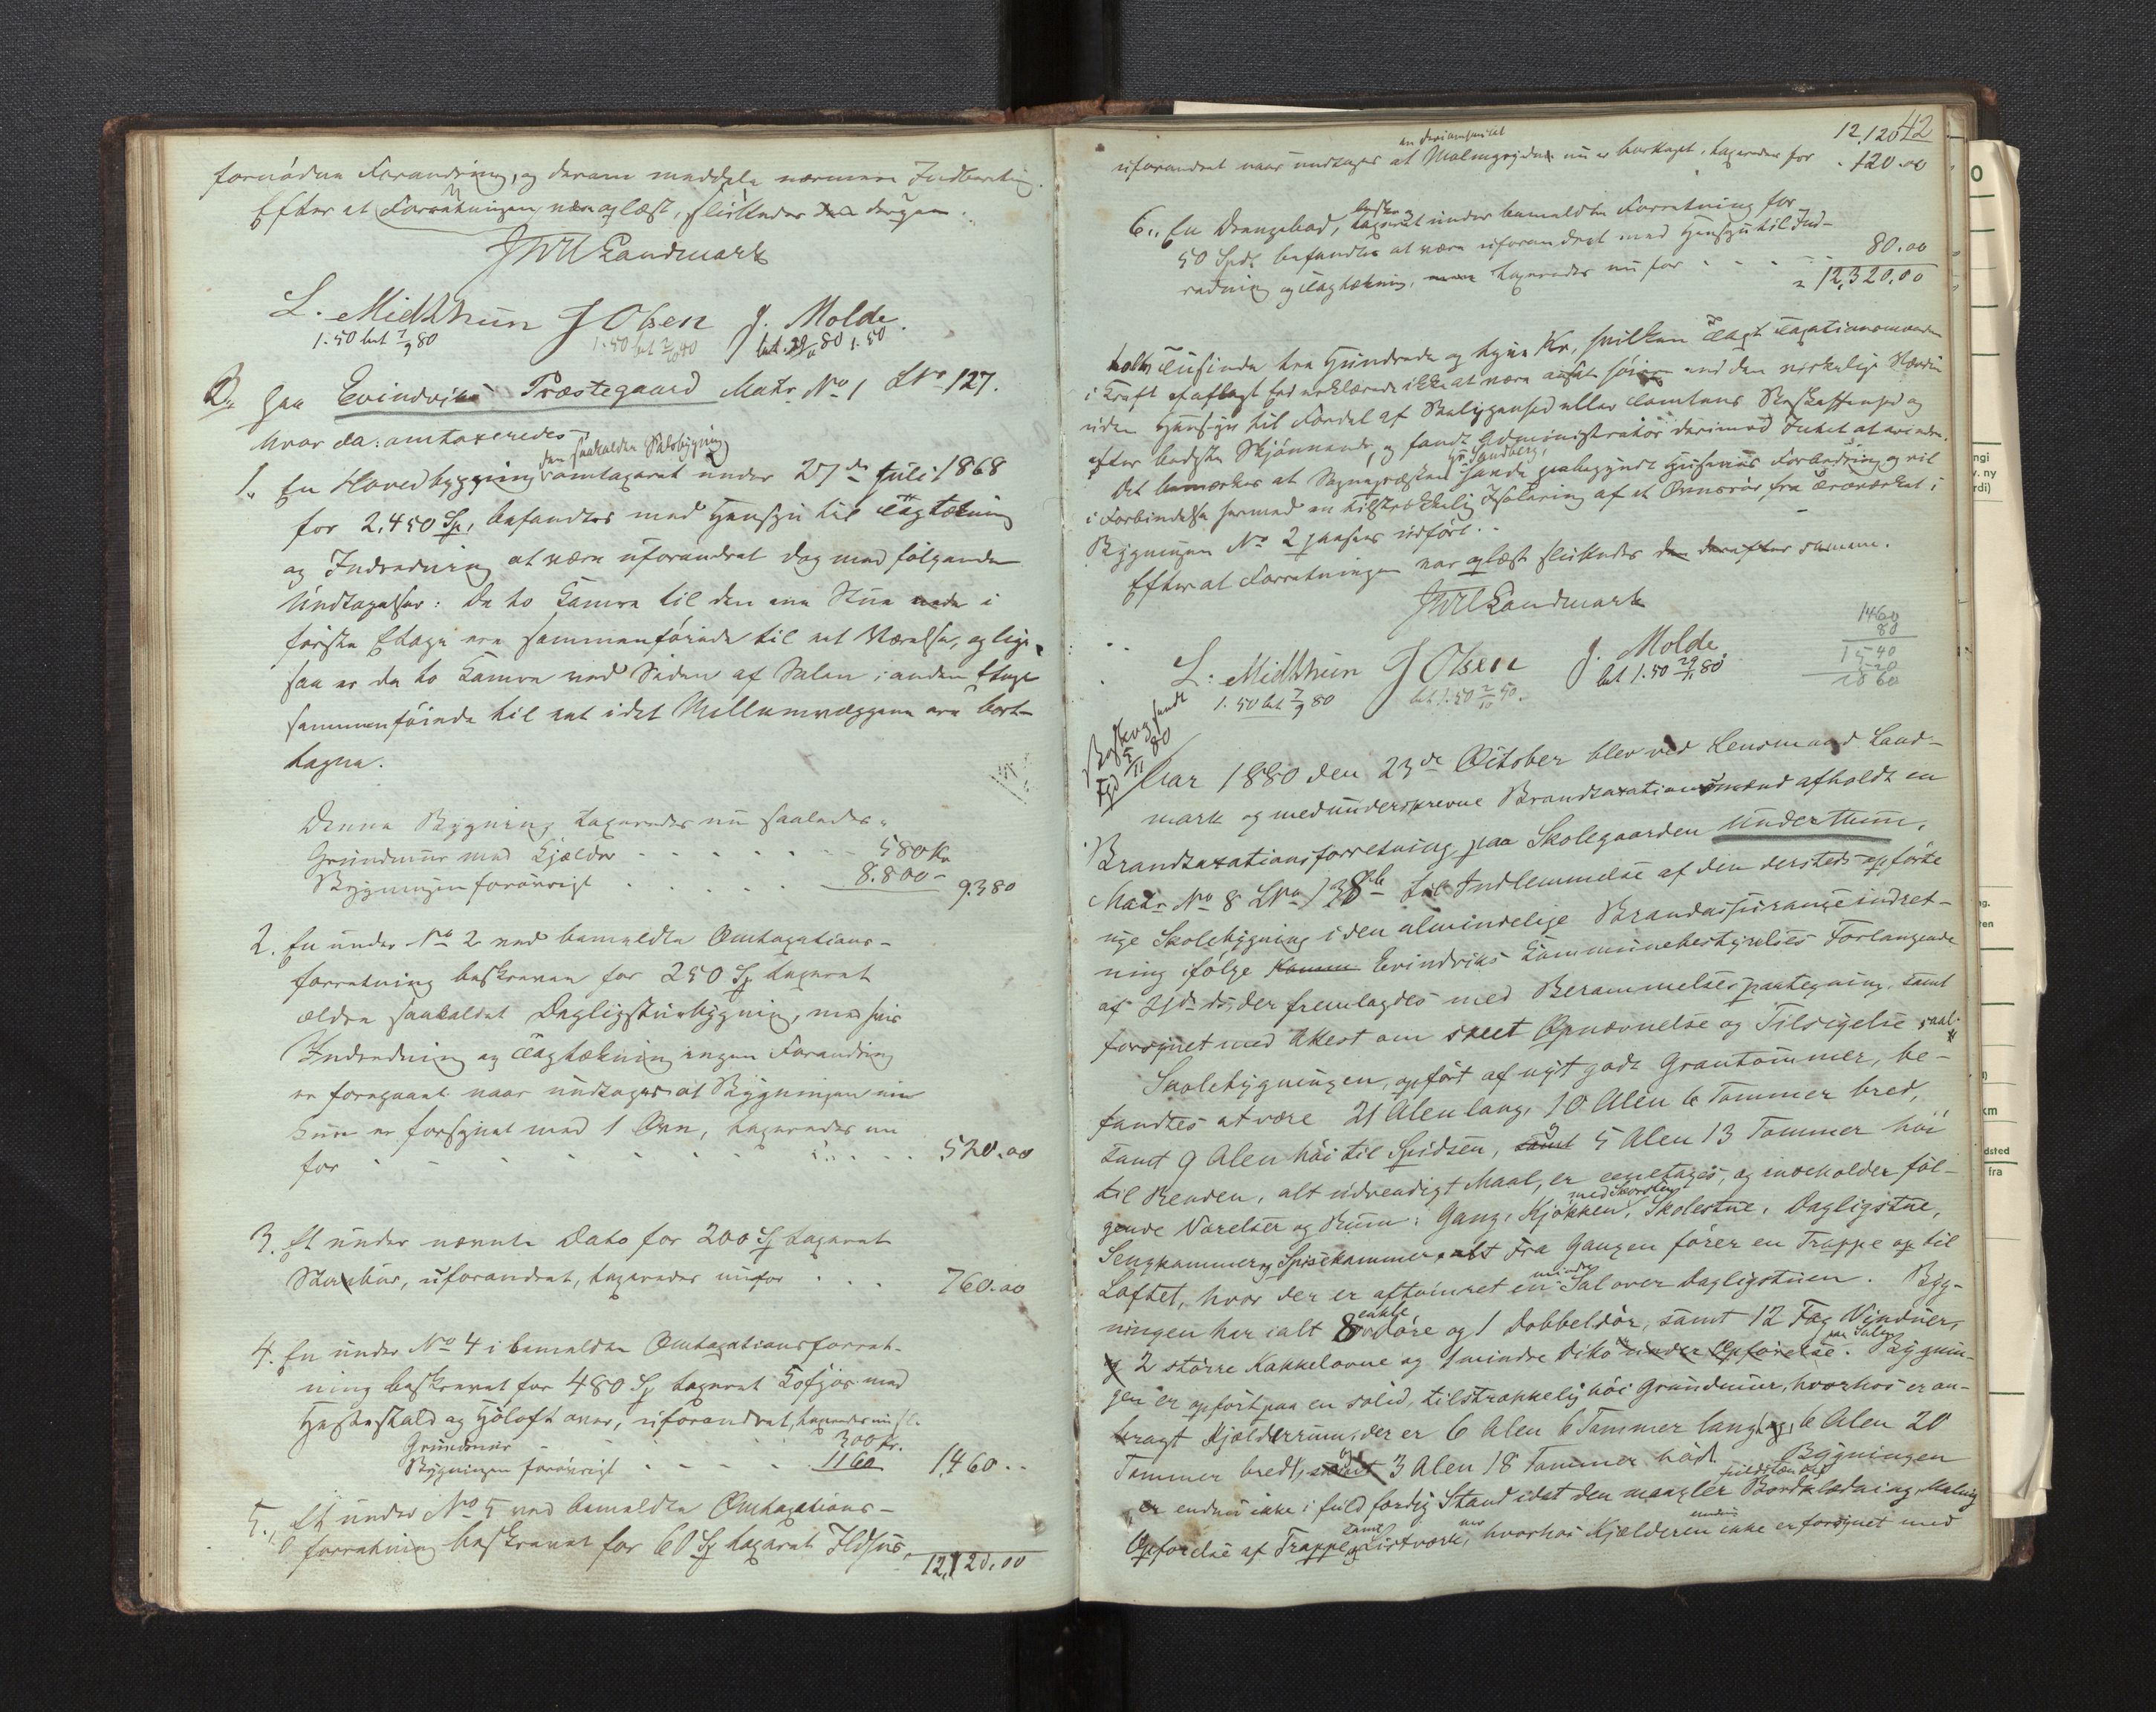 fornödne Forandring, og derom meddele nærmere Indberetning.
Efter at Forretningen var oplæst, sluttedes den dergen.
JWE Landmark
L. Midthun J Olsen J. Molde.
1.50 bet 7/9 80 1.50 bet 2/10 80 bet. 29/11 80 1.50
B, paa Evindviks Præstegaard Matr No 1 LNo 127.
hvor da: omtaxeredes
den saakaldte Salsbygning
1, En Hovedbygning omtaxeret under 27de Juli 1868
for 2,450 Sp, befandtes med Hensyn til Tagtækning
og Indredning at være uforandret dog med følgende
Undtagelser: De to Kamre til den ene Stue nede i
første Etage ere sammenføiede til eet Værelse, og lige-
saa er de to Kamre ved Siden af Salen i anden Etage
sammenføiede til eet idet Mellemvæggene ere bort-
tagne.
Denne Bygning taxeredes nu saaledes:
Grundmur med Kjælder - - - - 580 Kr
Bygningen forøvrigt . . . . . 8.800 - 9380
2. En under No 2 ved bemeldte Omtaxations-
forretning beskreven for 250 Sp taxeret
ældre saakaldet Dagligstuebygning, med hvis
Indredning og Tagtækning ingen Forandring
er foregaaet naar undtages at Bygningen nu
kun er forsynet med 1 Ovn, taxeredes nu
for - - - - - - 520.00
3. Et under nævnte Dato for 200 Sp taxeret
Stabur, uforandret, taxeredes nu for . . . 760.00
4. En under No 4 i bemeldte Omtaxationsforret-
ning beskrevet for 480 Sp taxeret Kofjøs med
Hestestald og Høloft over, uforandret, taxeredes nu sl.
Grundmur - - - - 300 Kr.
Bygningen forøvrigt - - - - 1160 1,460 - -
5., Et under No 5 ved bemeldte Omtaxations-
forretning beskrevet for 60 Sp taxeret Ildhus,
12,120,00
12,120 42
uforandret naar undtages at Malmgryden nu er borttaget, taxeredes for - 120.00
6., En Drengebod, taxeret under bemeldte Forretning for
50 Spd befandtes at være uforandret med Hensyn til Ind-
redning og Tagtækning, taxeredes nu for - - - 80.00
12,320,00
tolv Tusinde tre Hundrede og tyve Kr, hvilken Taxt Taxationsmændene
i Kraft af aflagt Ed erklærede ikke at være ansat høiere end den virkelige Værdi
uden Hensyn til Fordel af Beliggenhed eller Tomtens Beskaffenhed og
efter bedste Skjønnende, og fandt Administrator derimod Intet at erindre.
Hr. Sandberg,
Det bemærkes at Sognepræsten havde paabegyndt Husenes Forbedring og vil
i Forbindelse hermed en tilstrækkelig Isolering af et Ovnsrør fra Træværket i
Bygningen No 2 paasees udført.
Efter at Forretningen var oplæst sluttedes den derefter samme.
JWE Landmark
L. Midthun J Olsen J. Molde.
1.50 bet 7/9 80 bet 1.50 2/10 80. bet 1.50 29/11 80
1460
80
1540
520
1860
Beskr. og sendt
Fgd 5/11 80
Aar 1880 den 23de October blev ved Lensmand Land-
mark og medunderskrevne Brandtaxationsmænd afholdt en
Brandtaxationsforretning paa Skolegaarden Underthun,
Matr No 8 LNo 138b til Indlemmelse af den dersteds opførte
nye Skolebygning i den almindelige Brandassuranceindret-
ning ifølge Evindviks Kommunebestyrelses Forlangende
af ds, der fremlagdes med Berammelsespaategning samt
forsynet med Attest om skeet Opnævnelse og Tilsigelse, saal.
Skolebygningen, opført af nyt godt Grantømmer, be-
fandtes at være 21 Alen lang, 10 Alen 6 Tommer bred,
samt 9 Alen høi til Spidsen, samt og 5 Alen 13 Tommer høi
til Renden, alt udvendigt Maal, er eenetages, og indeholder føl-
med Skorsten
gende Værelser og Rum: Gang, Kjøkken, Skolestue, Dagligstue,
Sengkammer og Spisekammer, Fra Gangen fører en Trappe op til
mindre
Loftet, hvor der er aftømret en Sal over Dagligstuen. Byg-
enkle
ningen har ialt 8 Døre og 1 Dobbeldør, samt 12 Fag Vinduer,
paa Salen
og 2 større Kakkelovne og 1 mindre dito under Opførelse. Bygnin-
gen er opført paa en solid, tilstrækkelig høi Grundmur, hvorhos er an-
bragt Kjælderrum, der er 6 Alen 6 Tommer langt, 6 Alen 20
og
Tommer bredt, samt 3 Alen 18 Tommer høit. Bygningen
fuldstændig
er endnu ikke i fuldfærdig Stand idet den mangler Bordklædning, Maling
samt endnu
Opførelse af Trappe og Listværk, hvorhos Kjælderen ikke er forsynet med